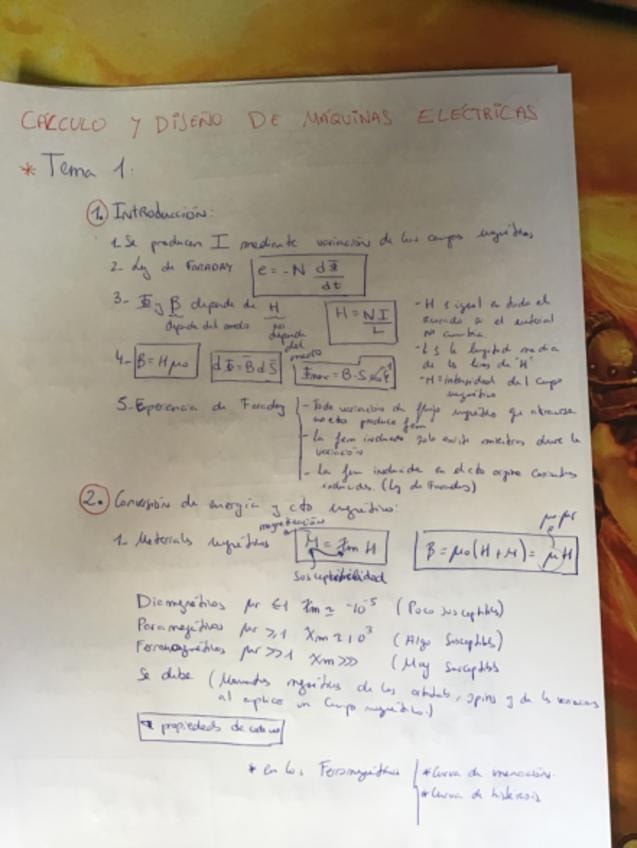 CÁLCULO Y DISEÑO DE MÁQUINAS ELÉCTRICAS
* Tema 1.
1. INTRODUCCIÓN:
1. Se producen I mediante variación de los campos magnéticos
2- Ley de FARADAY e = -N dΦ/dt
3- Φ y B depende de H
depende del medio
no depende del medio
H = NI/L
- H es igual en todo el
no cambia.
- L es la longitud media
de las líneas de "H"
- H = intensidad del campo
magnético
4- B = H μ0 dΦ = B̄ d S̄ Φmax = B · S
5. Experiencia de Faraday
- Toda variación de flujo magnético que atraviesa
un cto produce fem
- La fem inducida solo existe mientras dure la
variación
- La fem inducida en el cto origina corrientes
inducidas. (Ley de Faraday)
2. Conversión de energía y cto magnético:
magnetización
1- Materiales magnéticos M = χm H B = μ0(H + M) = μ H
μ0 μr
susceptibilidad
Diamagnéticos μr ≤ 1 χm ≃ -10⁻⁵ (Poco susceptibles)
Paramagnéticos μr ≥ 1 χm ≃ 10³ (Algo susceptibles)
Ferromagnéticos μr >> 1 χm >>> (Muy susceptibles
Se debe (Momentos magnéticos de los orbitales, spins y de las
al aplicar un campo magnético.)
propiedades de cada uno
* en los Ferromagnéticos
* Curva de imanación.
* Curva de histéresis